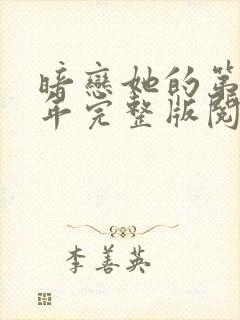 暗戀她的第
年完整版閱
李善英